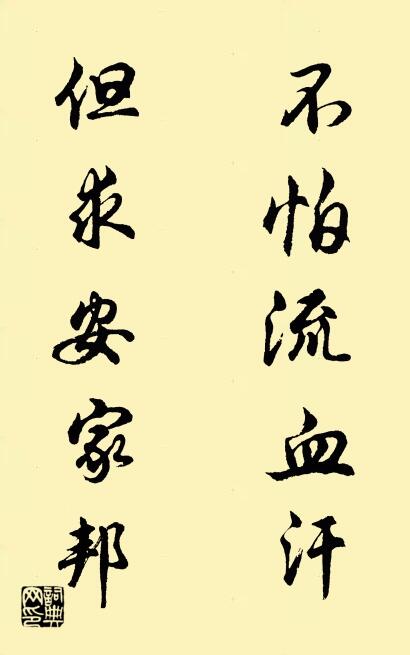 不怕流血汗
但求安家邦
詞典網印